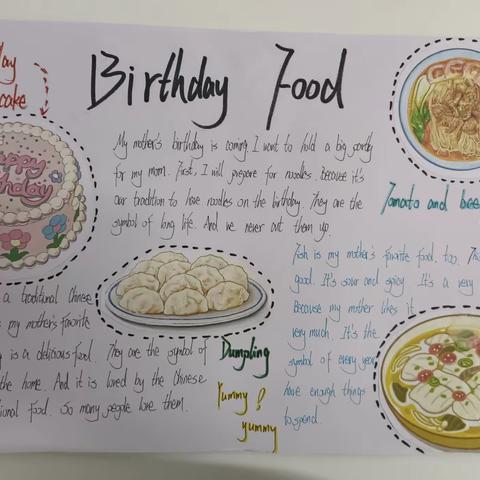 Birthday Food
day
cake
Happy
Birthday
My mother's birthday is coming. I want to hold a big party
for my mom. First, I will prepare for noodles. Because it's
our tradition to have noodles on the birthday. They are the
symbol of long life. And we never cut them up.
Tomato and bee
Fish is my mother's favorite food, too.
good. It's sour and spicy. It's a very
Because my mother likes it
very much. It's the
symbol of every year
have enough things
to spend.
a traditional Chinese
is my mother's favorite
is a delicious food. They are the symbol of
the home. And it is loved by the Chinese
tional food. So many people love them.
Dumpling
Yummy!
yummy